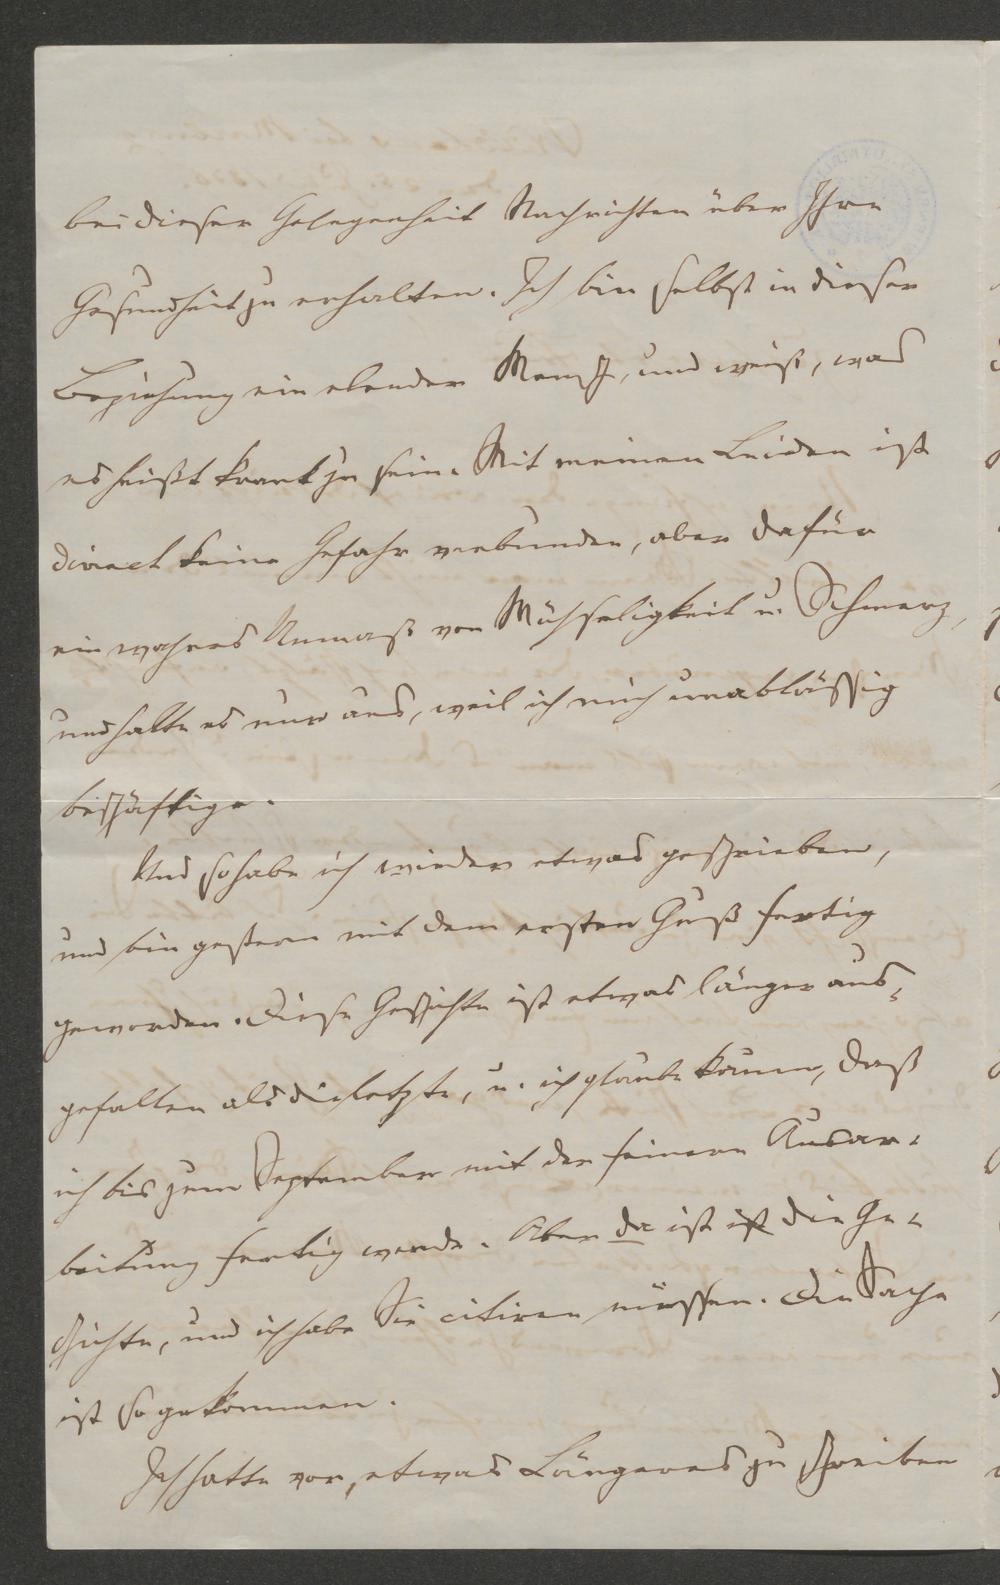 bei dieser Gelegenheit Nachrichten über Ihre
Gesundheit zu erhalten. Ich bin selbst in dieser
Beziehung ein elender Mensch, und weiß, was
es heißt krank zu sein. Mit meinen Leiden ist
direct keine Gefahr verbunden, aber dafür
ein wahres Unmaß von Mühseligkeit u. Schmerz,
und halte es nur aus, weil ich mich unablässig
beschäftige.
Und so habe ich wieder etwas geschrieben,
und bin gestern mit dem ersten Guß fertig
geworden. Diese Geschichte ist etwas länger aus-
gefallen als die letzte, u. ich glaube kaum, daß
ich bis zum September mit der feinern Ausar-
beitung fertig werde. Aber da ist ist die Ge-
schichte, und ich habe Sie citiren müssen. Die Sache
ist so gekommen.
Ich hatte vor, etwas Längeres zu schreiben